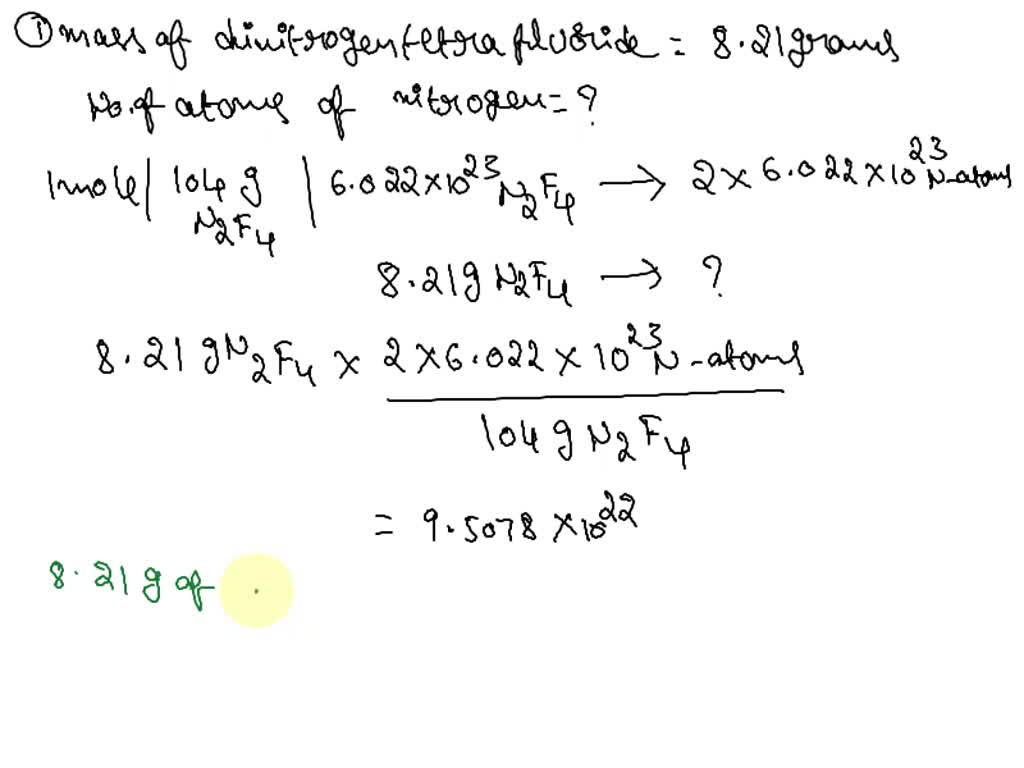 ① mass of dinitrogen tetra fluoride = 8.21 grams
No. of atoms of nitrogen = ?
1mole | 104 g N₂F₄ | 6.022 × 10²³ N₂F₄ → 2 × 6.022 × 10²³ N-atoms
8.21 g N₂F₄ → ?
8.21 g N₂F₄ × 2 × 6.022 × 10²³ N-atoms
104 g N₂F₄
= 9.5078 × 10²²
8.21 g of